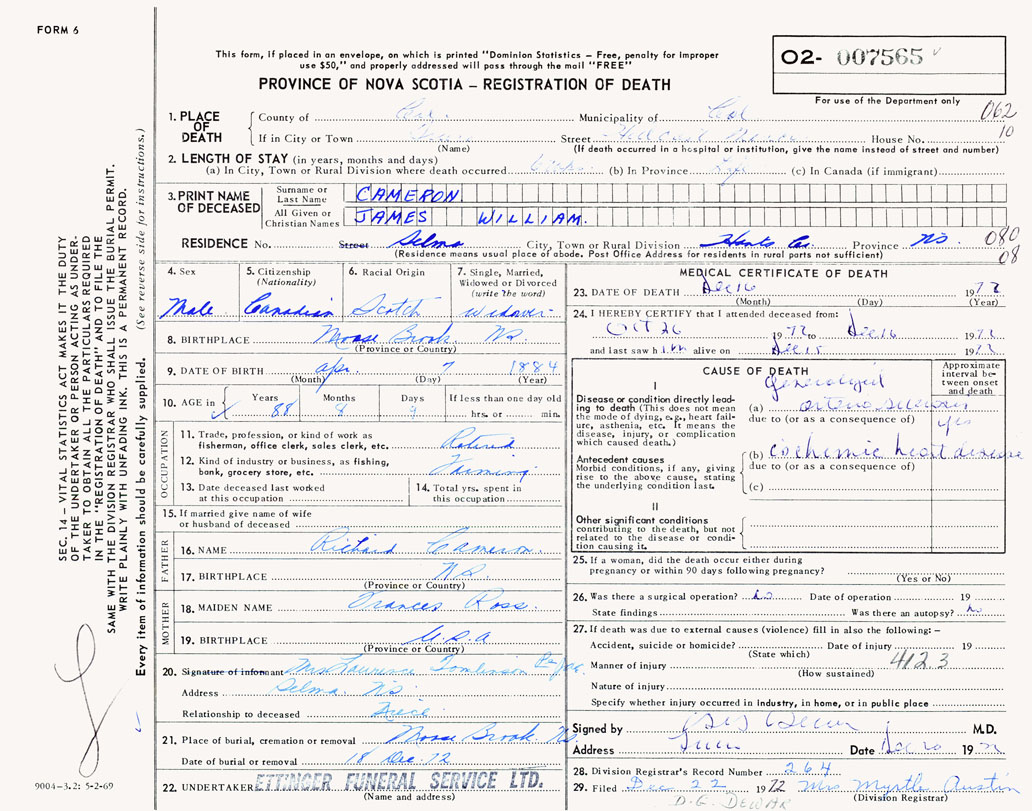 FORM 6
This form, if placed in an envelope, on which is printed "Dominion Statistics – Free, penalty for improper
use $50," and properly addressed will pass through the mail "FREE"
PROVINCE OF NOVA SCOTIA – REGISTRATION OF DEATH
O2- 007565
For use of the Department only
062
10
1. PLACE OF DEATH
County of Col. Municipality of Col
If in City or Town Truro Street House No.
(Name) (If death occurred in a hospital or institution, give the name instead of street and number)
2. LENGTH OF STAY (in years, months and days)
(a) In City, Town or Rural Division where death occurred (b) In Province Life (c) In Canada (if immigrant)
3. PRINT NAME OF DECEASED
Surname or Last Name CAMERON
All Given or Christian Names JAMES WILLIAM.
RESIDENCE No. Street Selma City, Town or Rural Division Hants Co. Province N.S.
080
08
(Residence means usual place of abode. Post Office Address for residents in rural parts not sufficient)
4. Sex
Male
5. Citizenship
(Nationality)
Canadian
6. Racial Origin
Scotch
7. Single, Married, Widowed or Divorced
(write the word)
Widower
8. BIRTHPLACE Moose Brook N.S.
(Province or Country)
9. DATE OF BIRTH Apr. 7 1884
(Month) (Day) (Year)
10. AGE in Years 88 Months 8 Days 9 If less than one day old
hrs. or min.
OCCUPATION
11. Trade, profession, or kind of work as
fisherman, office clerk, sales clerk, etc. Retired
12. Kind of industry or business, as fishing,
bank, grocery store, etc. Farming
13. Date deceased last worked
at this occupation
14. Total yrs. spent in
this occupation
15. If married give name of wife
or husband of deceased
FATHER
16. NAME Richard Cameron.
17. BIRTHPLACE N.S.
(Province or Country)
MOTHER
18. MAIDEN NAME Frances Ross.
19. BIRTHPLACE U.S.A
(Province or Country)
20. Signature of informant Mrs Lawrence Tomlinson
Address Selma. N.S.
Relationship to deceased Niece
21. Place of burial, cremation or removal Moose Brook. N.S.
Date of burial or removal 18 Dec. 72
22. UNDERTAKER ETTINGER FUNERAL SERVICE LTD.
(Name and address)
MEDICAL CERTIFICATE OF DEATH
23. DATE OF DEATH Dec 16 1972
(Month) (Day) (Year)
24. I HEREBY CERTIFY that I attended deceased from:
Oct 26 1972 to Dec 16 1972
and last saw him alive on Dec 15 1972
CAUSE OF DEATH
Approximate interval between onset and death
I
Disease or condition directly leading to death (This does not mean the mode of dying, e.g., heart failure, asthenia, etc. It means the disease, injury, or complication which caused death.)
generalized
(a) arterio sclerosis
due to (or as a consequence of) yrs
Antecedent causes
Morbid conditions, if any, giving rise to the above cause, stating the underlying condition last.
(b) ischemic heart disease
due to (or as a consequence of)
(c)
II
Other significant conditions
contributing to the death, but not related to the disease or condition causing it.
25. If a woman, did the death occur either during
pregnancy or within 90 days following pregnancy?
(Yes or No)
26. Was there a surgical operation? no Date of operation 19
State findings Was there an autopsy? no
27. If death was due to external causes (violence) fill in also the following: –
Accident, suicide or homicide? Date of injury 19
(State which)
4123
Manner of injury
(How sustained)
Nature of injury
Specify whether injury occurred in industry, in home, or in public place
Signed by M.D.
Address Truro Date Dec 20 1972
28. Division Registrar's Record Number 264
29. Filed Dec 22 1972 Mrs Myrtle Austin
(Division Registrar)
D.G. DEWAR
SEC. 14 – VITAL STATISTICS ACT MAKES IT THE DUTY
OF THE UNDERTAKER OR PERSON ACTING AS UNDER-
TAKER TO OBTAIN ALL THE PARTICULARS REQUIRED
IN THE "REGISTRATION OF DEATH" AND TO FILE THE
SAME WITH THE DIVISION REGISTRAR WHO SHALL ISSUE THE BURIAL PERMIT.
WRITE PLAINLY WITH UNFADING INK. THIS IS A PERMANENT RECORD.
Every item of information should be carefully supplied. (See reverse side for instructions.)
9004-3.2: 5-2-69